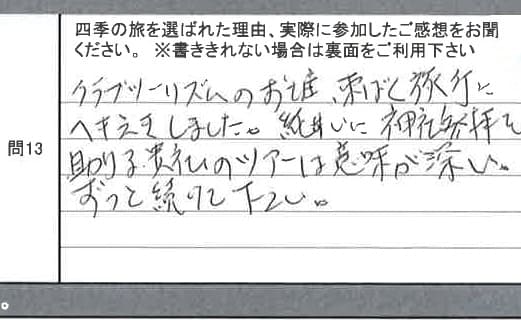 四季の旅を選ばれた理由、実際に参加したご感想をお聞
ください。 ※書ききれない場合は裏面をご利用下さい
問13
クラブツーリズムのお土産、束ばく旅行に
へきえきしました。純粋いに神社参拝を
助ける貴社のツアーは意味が深い。
ずっと続けて下さい。
。